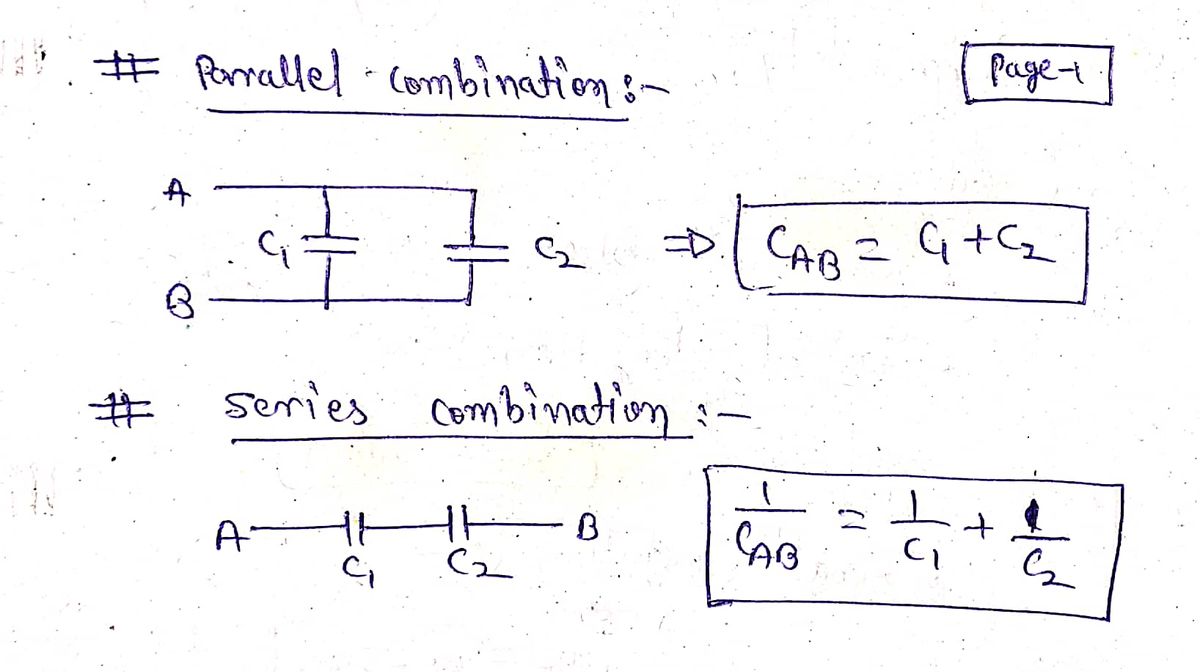 # Parallel combination :-
Page-1
A
C₁
C₂
⇒ C_AB = C₁ + C₂
B
# Series combination :-
A
B
C₁
C₂
1/C_AB = 1/C₁ + 1/C₂